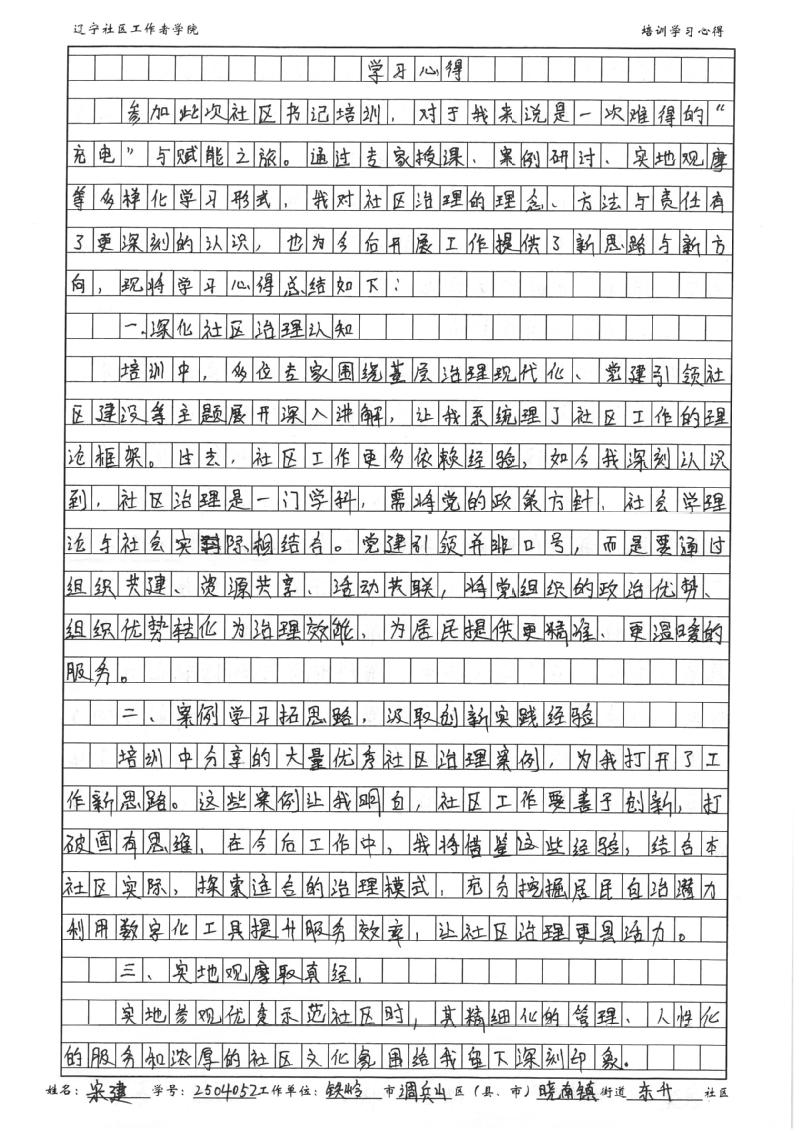 辽宁社区工作者学院 培训学习心得
学习心得
参加此次社区书记培训，对于我来说是一次难得的“
充电”与赋能之旅。通过专家授课、案例研讨、实地观摩
等多样化学习形式，我对社区治理的理念、方法与责任有
了更深刻的认识，也为今后开展工作提供了新思路与新方
向，现将学习心得总结如下：
一.深化社区治理认知
培训中，多位专家围绕基层治理现代化、党建引领社
区建设等主题展开深入讲解，让我系统理了社区工作的理
论框架。过去，社区工作更多依赖经验，如今我深刻认识
到，社区治理是一门学科，需将党的政策方针、社会学理
论与社会实际相结合。党建引领并非口号，而是要通过
组织共建、资源共享、活动共联，将党组织的政治优势、
组织优势转化为治理效能、为居民提供更精准、更温暖的
服务。
二、案例学习拓思路，汲取创新实践经验
培训中分享的大量优秀社区治理案例，为我打开了工
作新思路。这些案例让我明白，社区工作要善于创新，打
破固有思维、在今后工作中，我将借鉴这些经验，结合本
社区实际，探索适合的治理模式，充分挖掘居民自治潜力
利用数字化工具提升服务效率，让社区治理更具活力。
三、实地观摩取真经，
实地参观优秀示范社区时，其精细化的管理、人性化
的服务和浓厚的社区文化氛围给我留下深刻印象。
姓名：宋建 学号：2504052 工作单位：铁岭 市 调兵山 区（县、市）晓南镇 街道 东升 社区